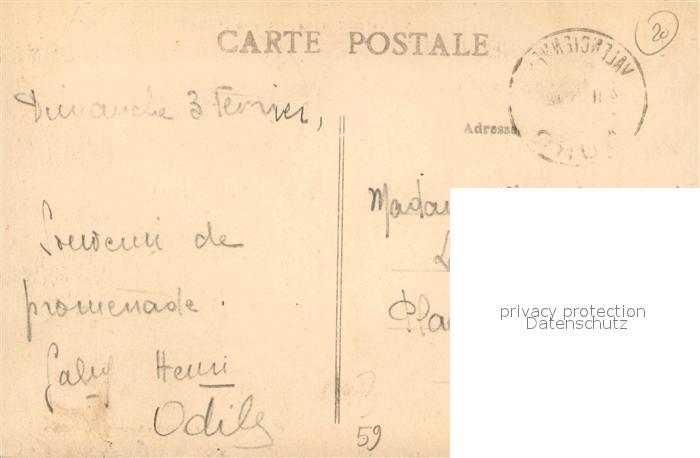 CARTE POSTALE
20
VALENCIENNES
NORD
Dimanche 3 Février,
Adresse
Madam
Souvenir de
promenade.
Pla
privacy protection
Datenschutz
Henri
Odile
59